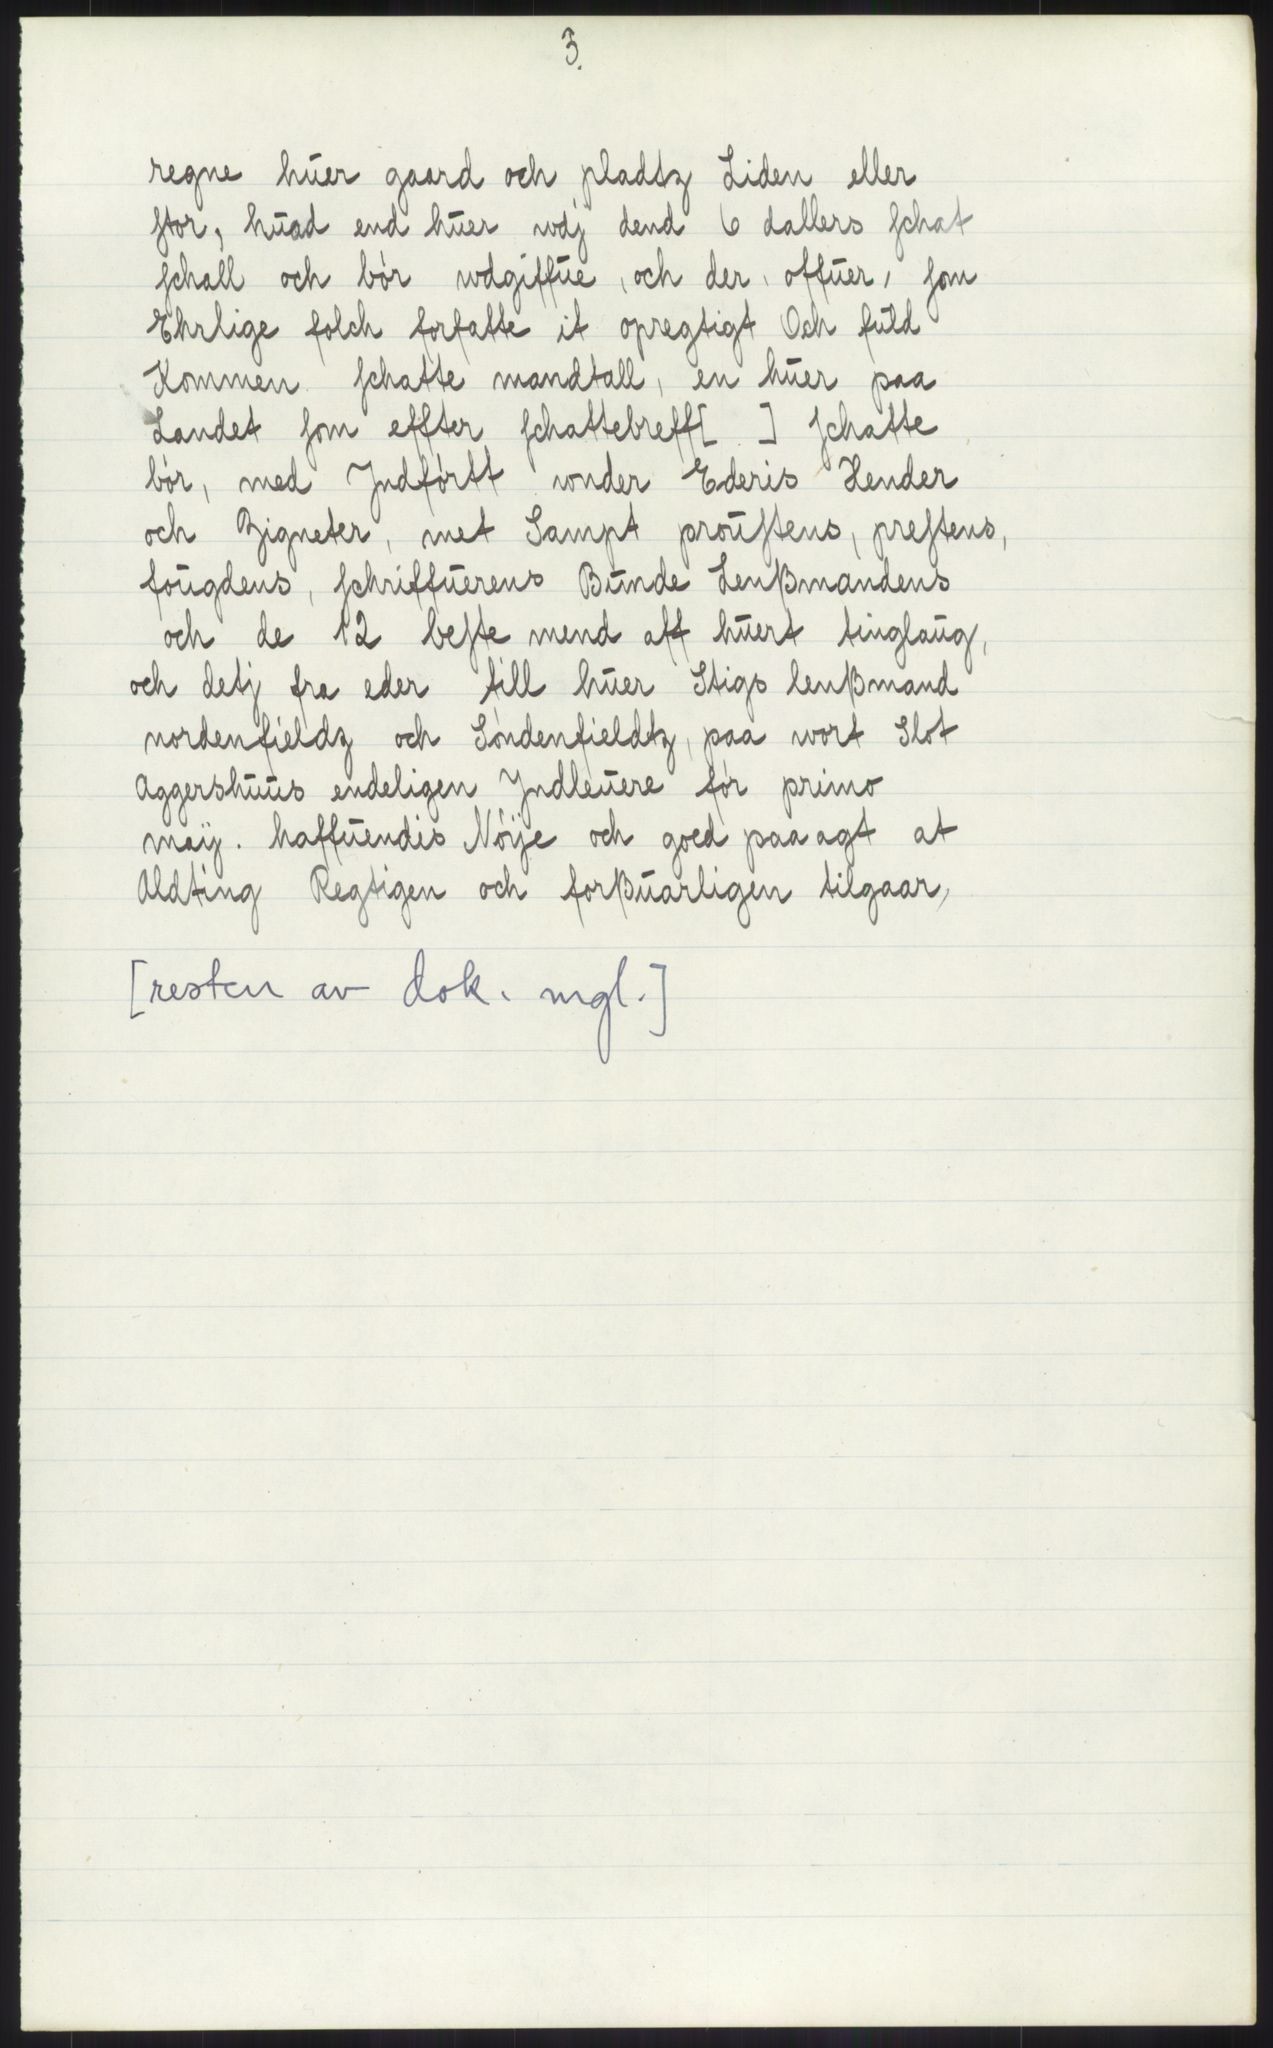 3.
regne huer gaard och pladtz Liden eller
stor, huad end huer wdj dend 6 dallers schat
schall och bör wdgiffue, och der, offuer, som
Ehrlige folch forfatte it opregtigt Och fuld
Kommen schatte mandtall, en huer paa
Landet som effter schattebreff[ ] schatte
bör, med Jndförtt wnder Ederis Hender
och Zigneter, met Sampt proustens, prestens,
fougdens, schriffuerens Bunde Lenßmandens
och de 12 beste mend aff huert tinglaug,
och detj fra eder till huer Stigs lenßmand
nordenfieldz och Söndenfieldtz, paa wort Slot
Aggershuus endeligen Jndleuere för primo
maÿ. haffuendis Nöÿe och goed paa agt at
Aldting Regtigen och forßuarligen tilgaar,
[resten av dok. mgl.]